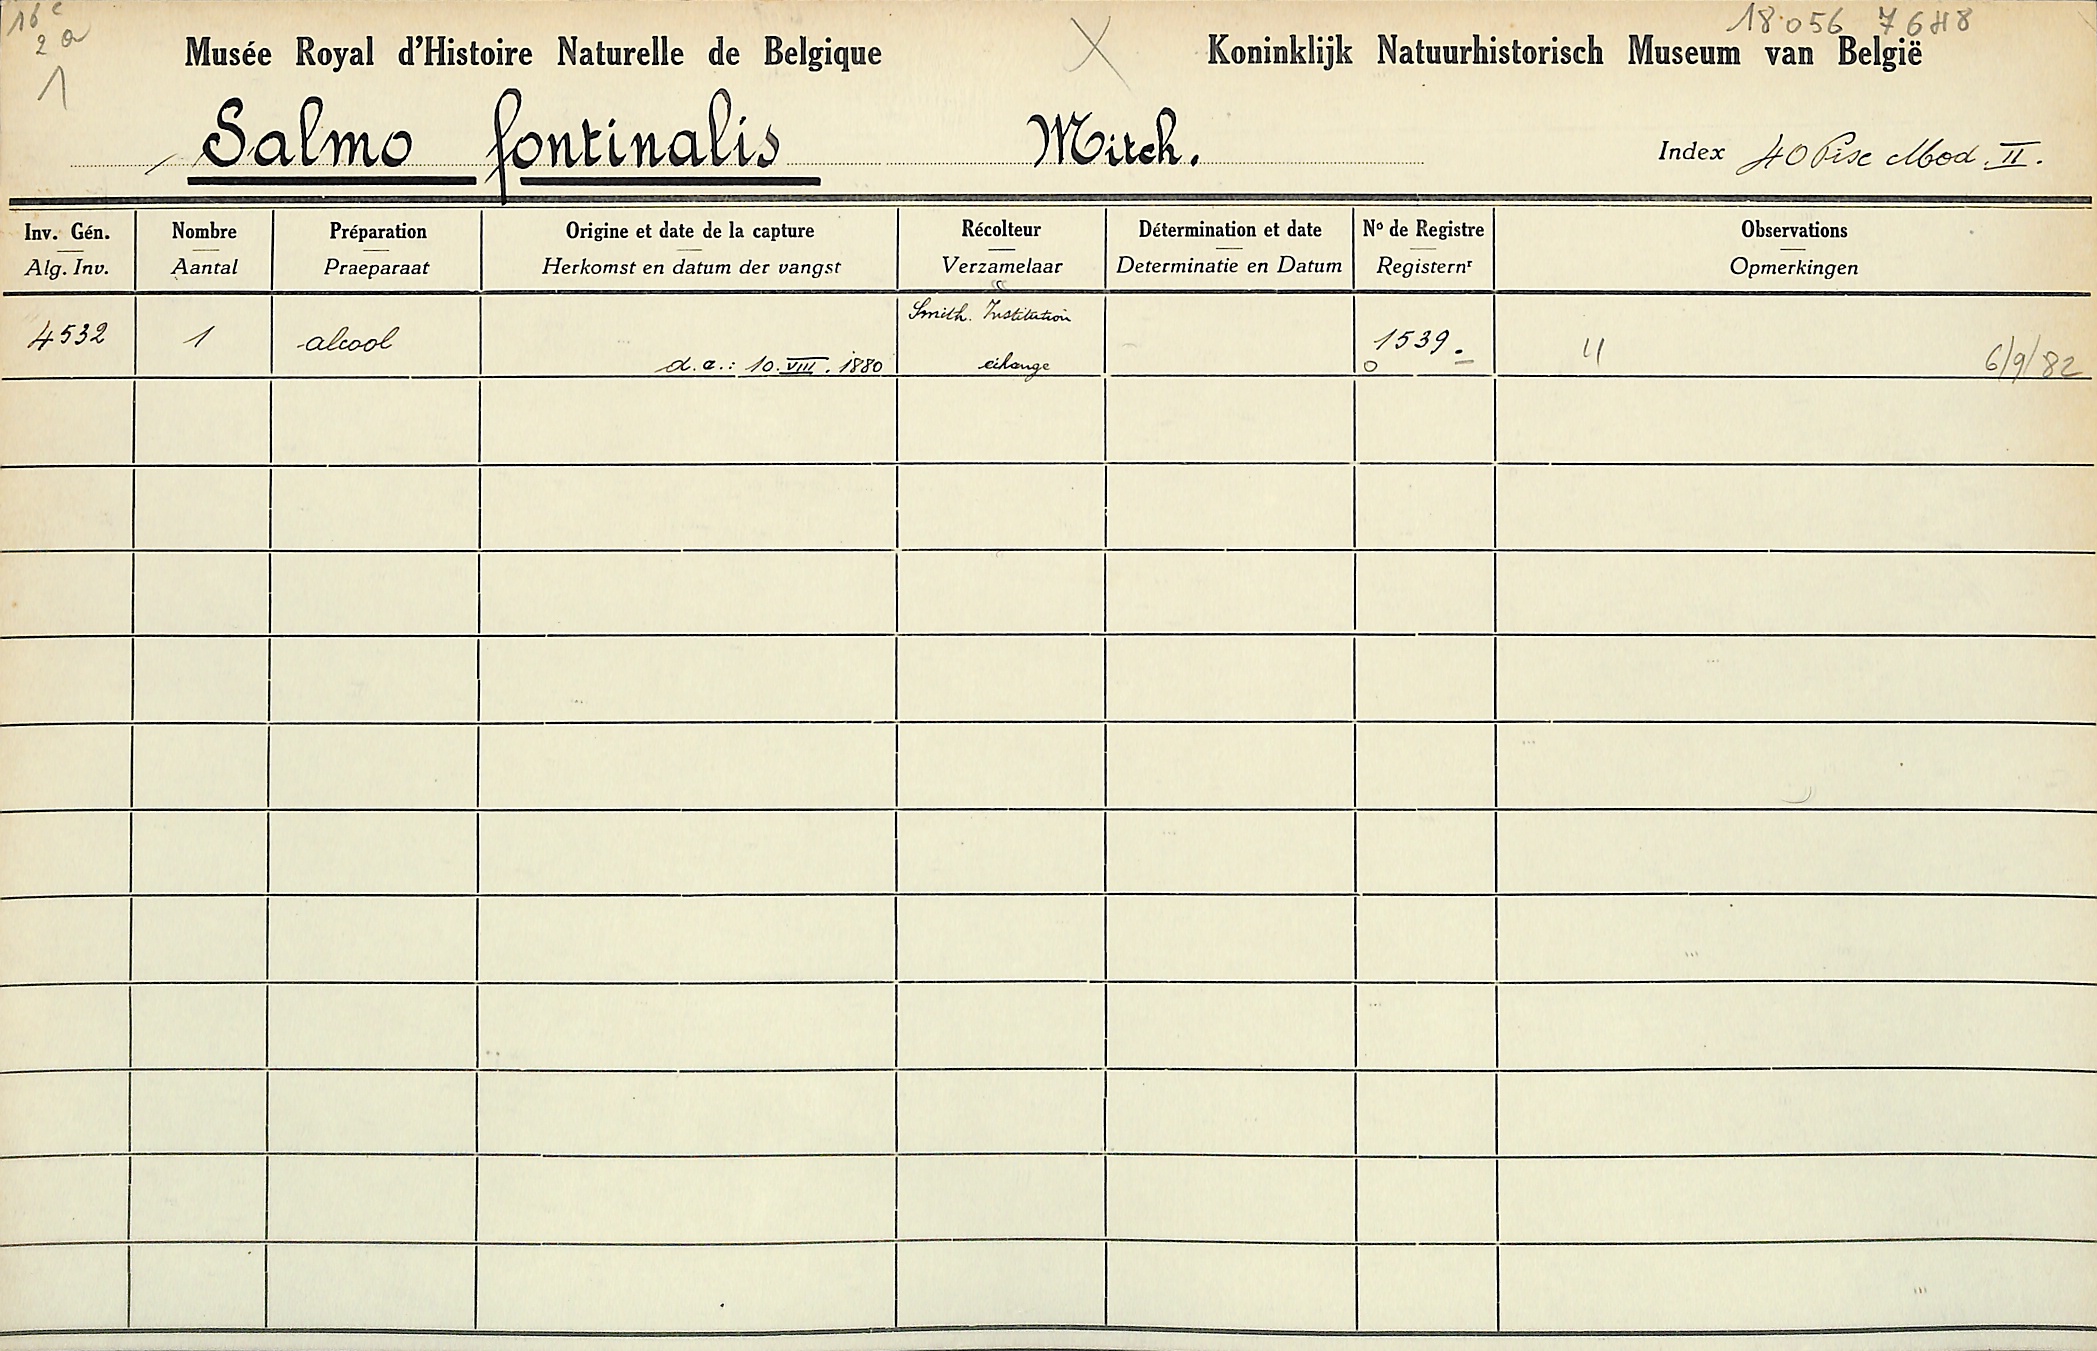 16 c
2 a
1
18056 7648
Musée Royal d'Histoire Naturelle de Belgique X Koninklijk Natuurhistorisch Museum van België
Salmo fontinalis Mitch. Index 40 Pisc Mod. II.
Inv. Gén. Nombre Préparation Origine et date de la capture Récolteur Détermination et date No de Registre Observations
Alg. Inv. Aantal Praeparaat Herkomst en datum der vangst Verzamelaar Determinatie en Datum Registernr Opmerkingen
Smith. Institution
4532 1 alcool 1539.
d.e.: 10.VIII.1880 échange 6/9/82